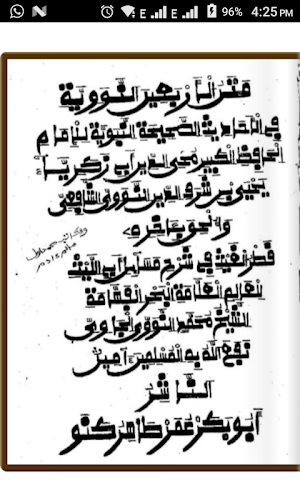 96% 4:25 PM
متن الأربعين النووية
في الأحاديث الصحيحة النبوية للإمام
الحافظ الكبير محي الدين أبي زكرياء
يحيى بن شرف الدين النووي الشافعي
وبالحق بآخره
قطر الغيث في شرح مسائل أبي الليث
للعالم العلامة البحر الفهامة
الشيخ محمد النووي الجاوي
نفع الله به المسلمين آمين
الناشر
أبوبكر عمر طاهر كنو